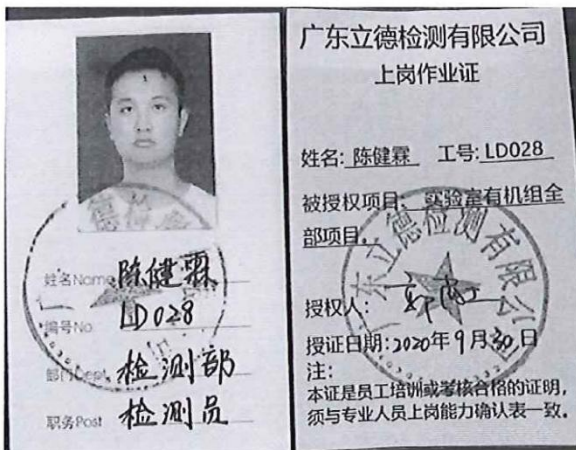 姓名Name 陈健霖
编号No. LD028
部门Dept 检测部
职务Post 检测员
广东立德检测有限公司
上岗作业证
姓名: 陈健霖 工号: LD028
被授权项目: 实验室有机组全
部项目。
广东立德检测有限公司
授权人:
授证日期: 2020年9月30日
注:
本证是员工培训或考核合格的证明,
须与专业人员上岗能力确认表一致。